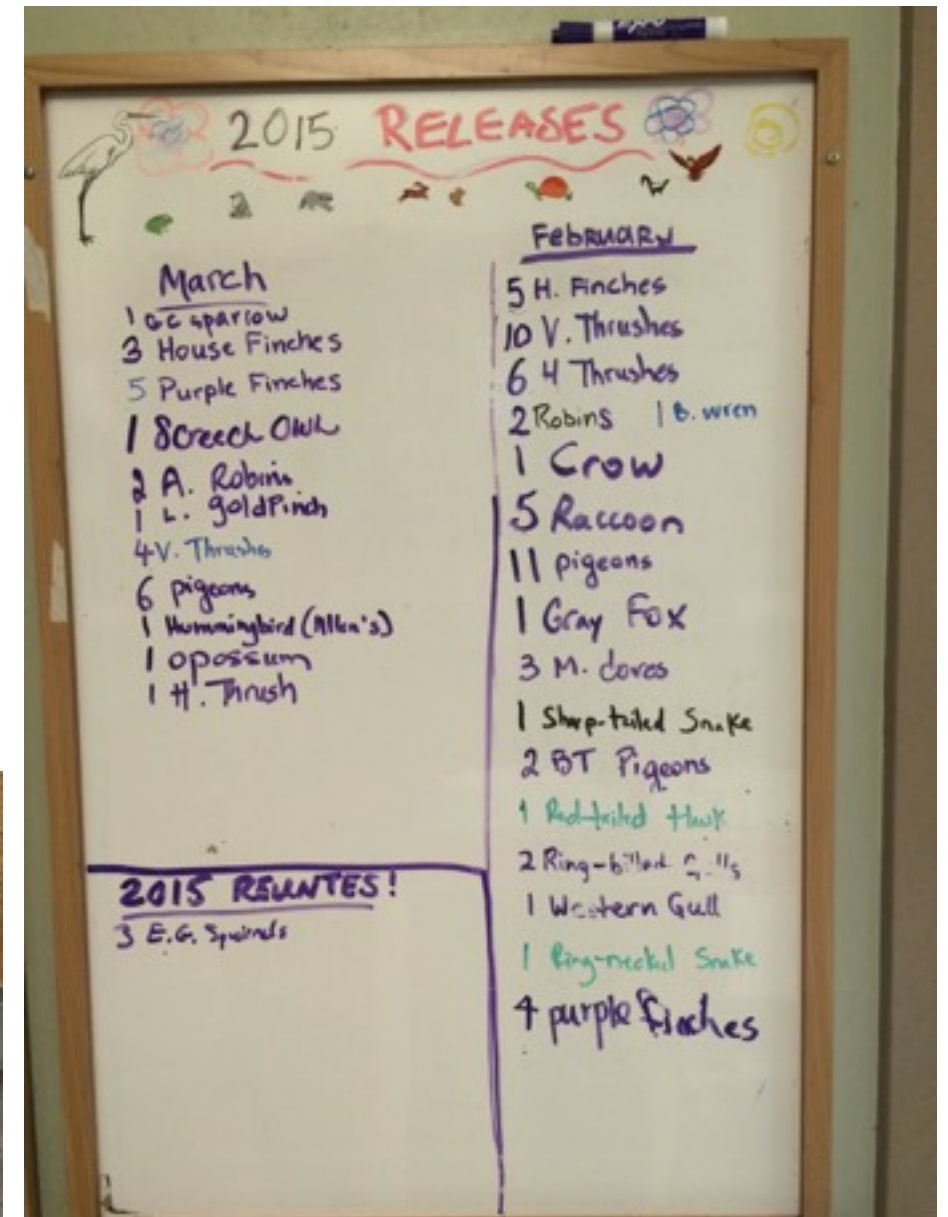 2015 RELEASES
March
1 GC sparrow
3 House Finches
5 Purple Finches
1 Screech Owl
2 A. Robins
1 L. goldfinch
4 V. Thrushes
6 pigeons
1 Hummingbird (Allen's)
1 opossum
1 H. Thrush
2015 REUNTES!
3 E.G. Squirrels
February
5 H. Finches
10 V. Thrushes
6 H Thrushes
2 Robins 1 B. wren
1 Crow
5 Raccoon
11 pigeons
1 Gray Fox
3 M. doves
1 Sharp-tailed Snake
2 BT Pigeons
1 Red-tailed Hawk
2 Ring-billed
1 Western Gull
1 Ring-necked Snake
4 purple finches